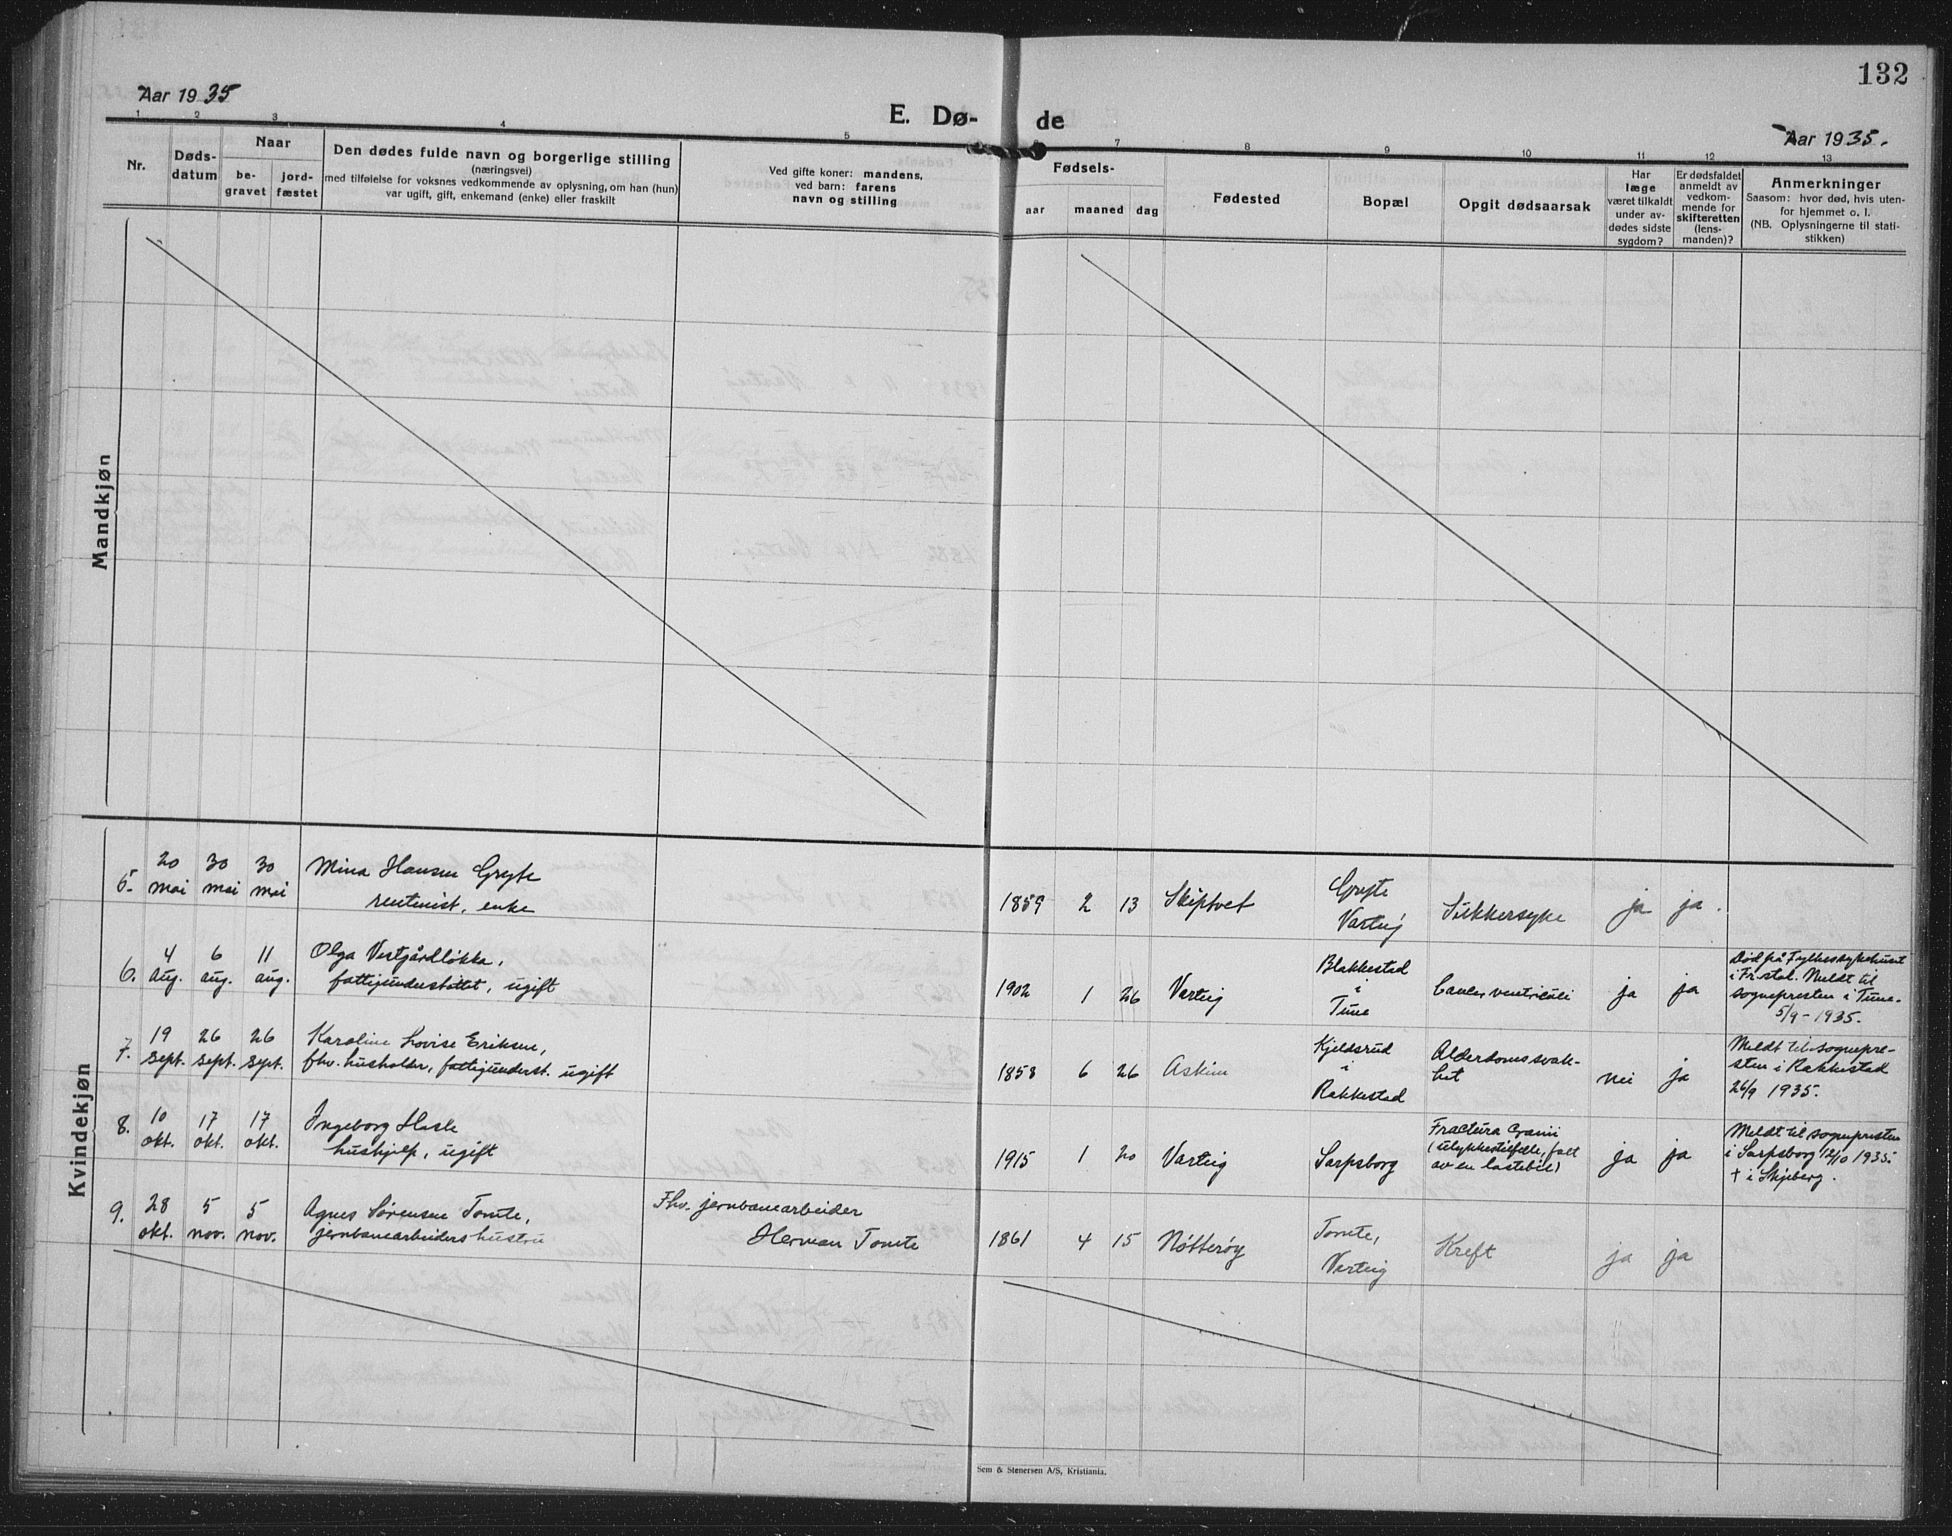 132
Aar 1935
E. Dø- de
Aar 1935.
1 2 3 4 5 7 8 9 10 11 12 13
Nr.
Døds-
datum
Naar
be-
gravet
jord-
fæstet
Den dødes fulde navn og borgerlige stilling
(næringsvei)
med tilføielse for voksnes vedkommende av oplysning, om han (hun)
var ugift, gift, enkemand (enke) eller fraskilt
Ved gifte koner: mandens,
ved barn: farens
navn og stilling
Fødsels-
aar maaned dag
Fødested
Bopæl
Opgit dødsaarsak
Har
læge
været tilkaldt
under av-
dødes sidste
sygdom?
Er dødsfaldet
anmeldt av
vedkom-
mende for
skifteretten
(lens-
manden)?
Anmerkninger
Saasom: hvor død, hvis uten-
for hjemmet o. l.
(NB. Oplysningerne til stati-
stikken)
Mandkjøn
Kvindekjøn
5. 20 mai 30 mai 30 mai
Mina Hansen Gryte
rentenist, enke
1859 2 13 Skiptvet
Gryte
Varteig
Sukkersyke ja ja.
6. 4 aug. 6 aug. 11 aug.
Olga Vestgårdløkka,
fattigunderstøttet, ugift
1902 1 26 Varteig
Blakkestad
i
Tune
Cancer ventriculi ja ja
Død på Fylkessykehuset
i Fr.stad. Meldt til
sognepresten i Tune.
5/9-1935.
7. 19 sept. 26 sept. 26 sept.
Karoline Lovise Eriksen,
fhv. husholder, fattigunderst. ugift
1858 6 26 Askim
Kjeldsrud
i
Rakkestad
Alderdomssvak-
het
nei ja
Meldt til sognepre-
sten i Rakkestad
26/9 1935.
8. 10 okt. 17 okt. 17 okt.
Ingeborg Hasle
hushjelp, ugift
1915 1 20 Varteig
Sarpsborg
Fractura Cranii
(ulykkestilfelle, falt
av en lastebil)
ja ja
Meldt til sognepresten
i Sarpsborg 12/10 1935.
† i Skjeberg.
9. 28 okt. 5 nov. 5 nov.
Agnes Sørensen Tomte,
jernbanearbeiders hustru
Fhv. jernbanearbeider
Herman Tomte
1861 4 15 Nøtterøy
Tomte,
Varteig
Kreft ja ja
Sem & Stenersen A/S, Kristiania.